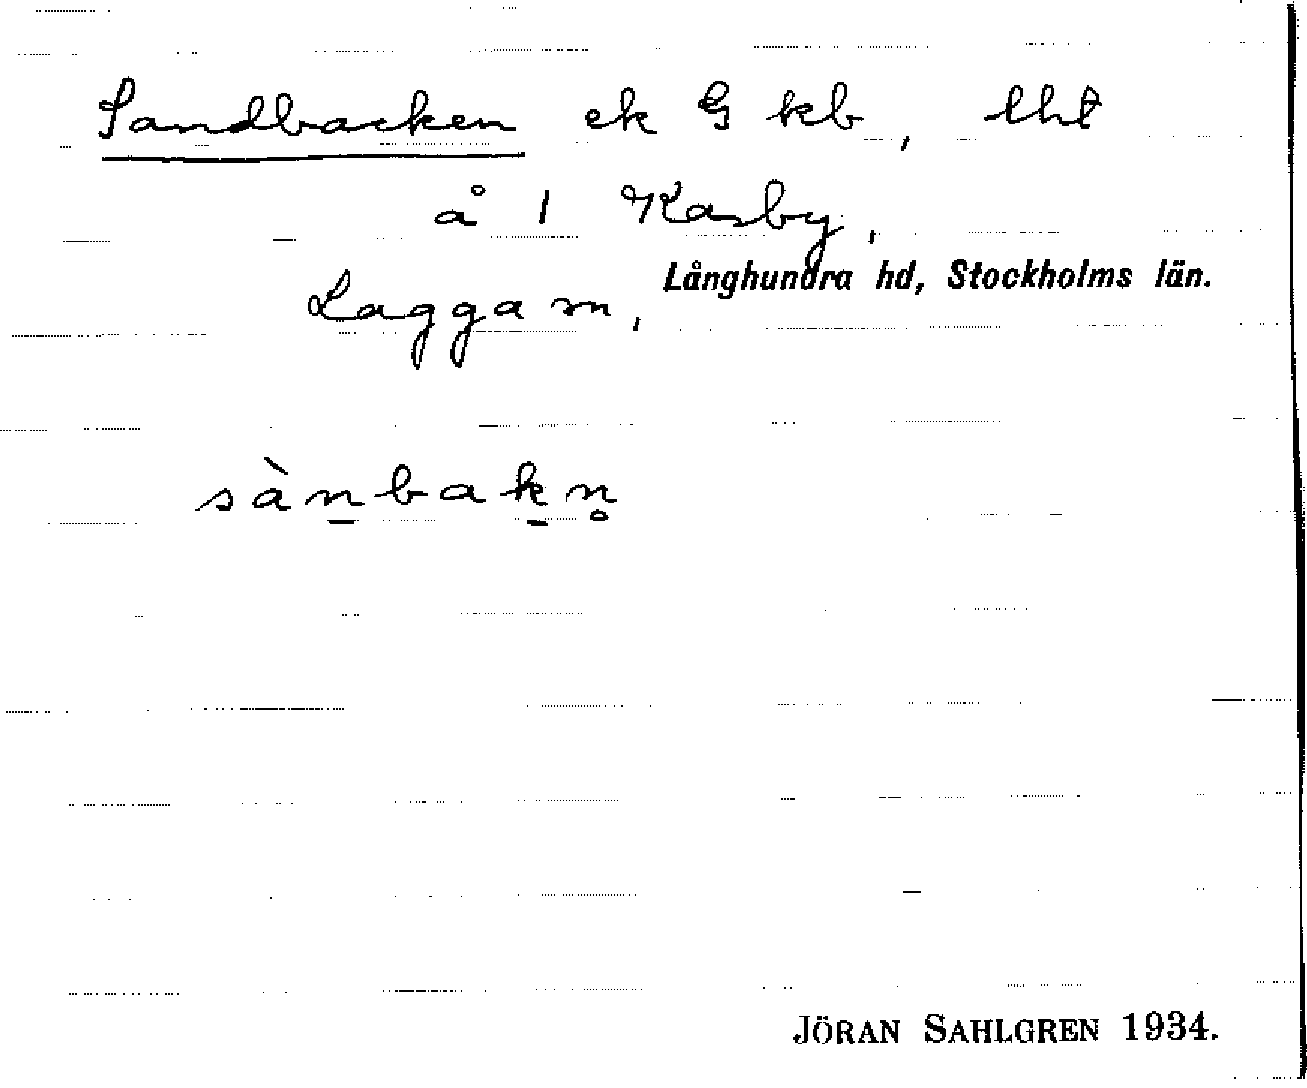 Sandbacken ek G kb, lht
å 1 Kasby,
Långhundra hd, Stockholms län.
Lagga sn,
sàn̠bak̠n̥
JÖRAN SAHLGREN 1934.